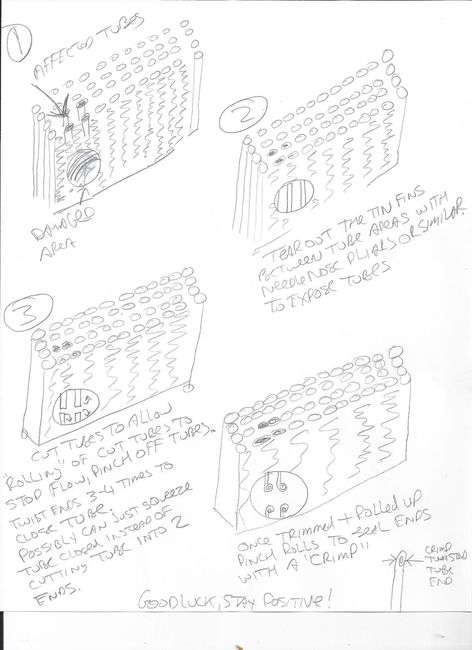 1
AFFECTED TUBES
DAMAGED
AREA
2
TEAR OUT THE TIN FINS
BETWEEN TUBE AREAS WITH
NEEDLENOSE PLIERS OR SIMILAR
TO EXPOSE TUBES
3
CUT TUBES TO ALLOW
"ROLLING" OF CUT TUBES TO
STOP FLOW, PINCH OFF TUBES.
TWIST ENDS 3-4 TIMES TO
CLOSE TUBE.
POSSIBLY CAN JUST SQUEEZE
TUBE CLOSED INSTEAD OF
CUTTING TUBE INTO 2
ENDS.
ONCE TRIMMED + ROLLED UP
PINCH ROLLS TO SEAL ENDS
WITH A "CRIMP"
CRIMP
TWISTED
TUBE
END
GOOD LUCK, STAY POSITIVE!